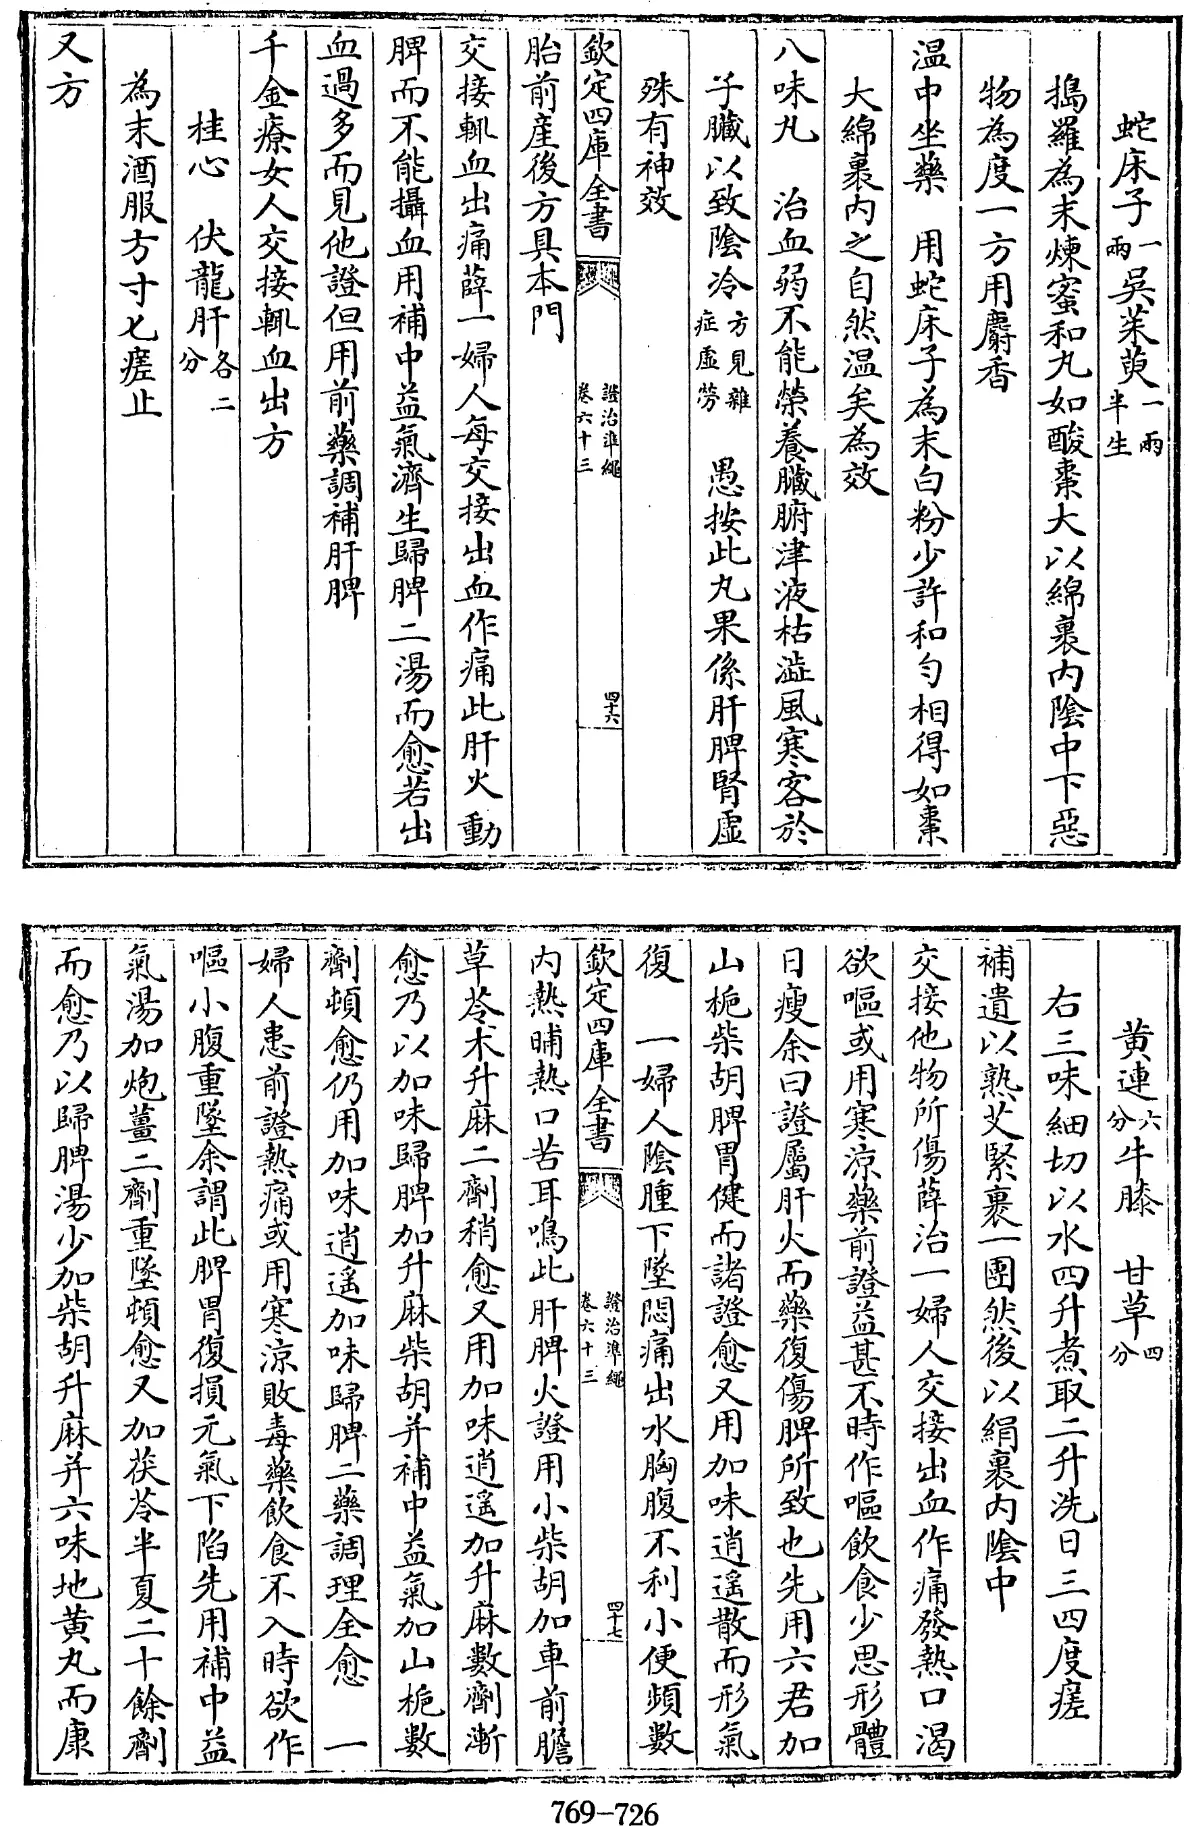 蛇床子一兩吳茱萸一兩半生
搗羅為末煉蜜和丸如酸棗大以綿裹内陰中下惡
物為度一方用麝香
温中坐藥　用蛇床子為末白粉少許和勻相得如棗
大綿裹内之自然温矣為效
八味丸　治血弱不能榮養臟腑津液枯澁風寒客於
子臟以致陰冷方見雜症虛勞　愚按此丸果係肝脾腎虛
殊有神效
欽定四庫全書　證治準繩卷六十三　四十六
胎前産後方具本門
交接輒血出痛薛一婦人每交接出血作痛此肝火動
脾而不能攝血用補中益氣濟生歸脾二湯而愈若出
血過多而見他證但用前藥調補肝脾
千金療女人交接輒血出方
桂心　伏龍肝各二分
為末酒服方寸匕瘥止
又方
黄連六分牛膝　甘草四分
右三味細切以水四升煮取二升洗日三四度瘥
補遺以熟艾緊裹一團然後以絹裹内陰中
交接他物所傷薛治一婦人交接出血作痛發熱口渴
欲嘔或用寒涼藥前證益甚不時作嘔飲食少思形體
日瘦余曰證屬肝火而藥復傷脾所致也先用六君加
山梔柴胡脾胃健而諸證愈又用加味逍遥散而形氣
復　一婦人陰腫下墜悶痛出水胸腹不利小便頻數
欽定四庫全書　證治準繩卷六十三　四十七
内熱晡熱口苦耳鳴此肝脾火證用小柴胡加車前膽
草苓术升麻二劑稍愈又用加味逍遥加升麻數劑漸
愈乃以加味歸脾加升麻柴胡并補中益氣加山梔數
劑頓愈仍用加味逍遥加味歸脾二藥調理全愈　一
婦人患前證熱痛或用寒涼敗毒藥飲食不入時欲作
嘔小腹重墜余謂此脾胃復損元氣下陷先用補中益
氣湯加炮薑二劑重墜頓愈又加茯苓半夏二十餘劑
而愈乃以歸脾湯少加柴胡升麻并六味地黄丸而康
769-726